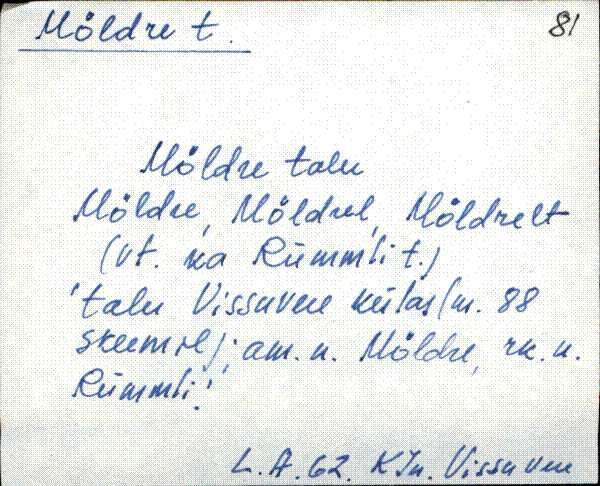 Möldre t.
81
Möldre talu
Möldre, Möldrel, Möldrelt
(vt. ka Rümmli t.)
'talu Vissuvere külas (m. 88
skeemil); am. n. Möldre, rk. n.
Rümmli.'
L. A. 62. KJn. Vissuvere